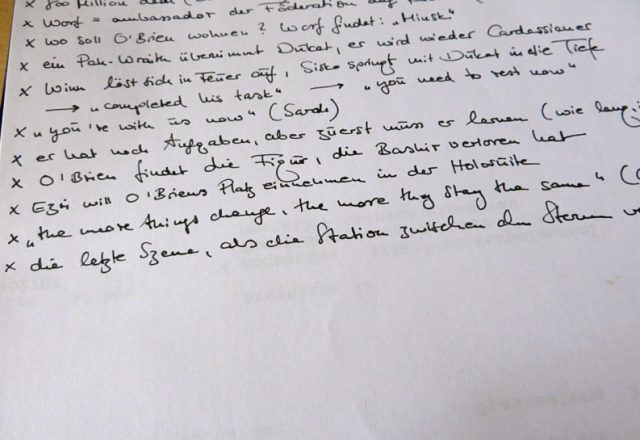 x 800 Million
x Worf = ambassador der Föderation auf
x wo soll O'Brien wohnen? Worf findet: "Minsk"
x ein Pah-Wraith übernimmt Dukat, er wird wieder Cardassianer
x Winn löst sich in Feuer auf, Sisko springt mit Dukat in die Tiefe
→ "completed his task" → "you need to rest now"
x "you're with us now" (Sarah)
x er hat noch Aufgaben, aber zuerst muss er lernen (wie lang
x O'Brien findet die Figur, die Bashir verloren hat
x Ezri will O'Briens Platz einnehmen in der Holosuite
x "the more things change, the more they stay the same" (
x die letzte Szene, als die Station zwischen den Sternen